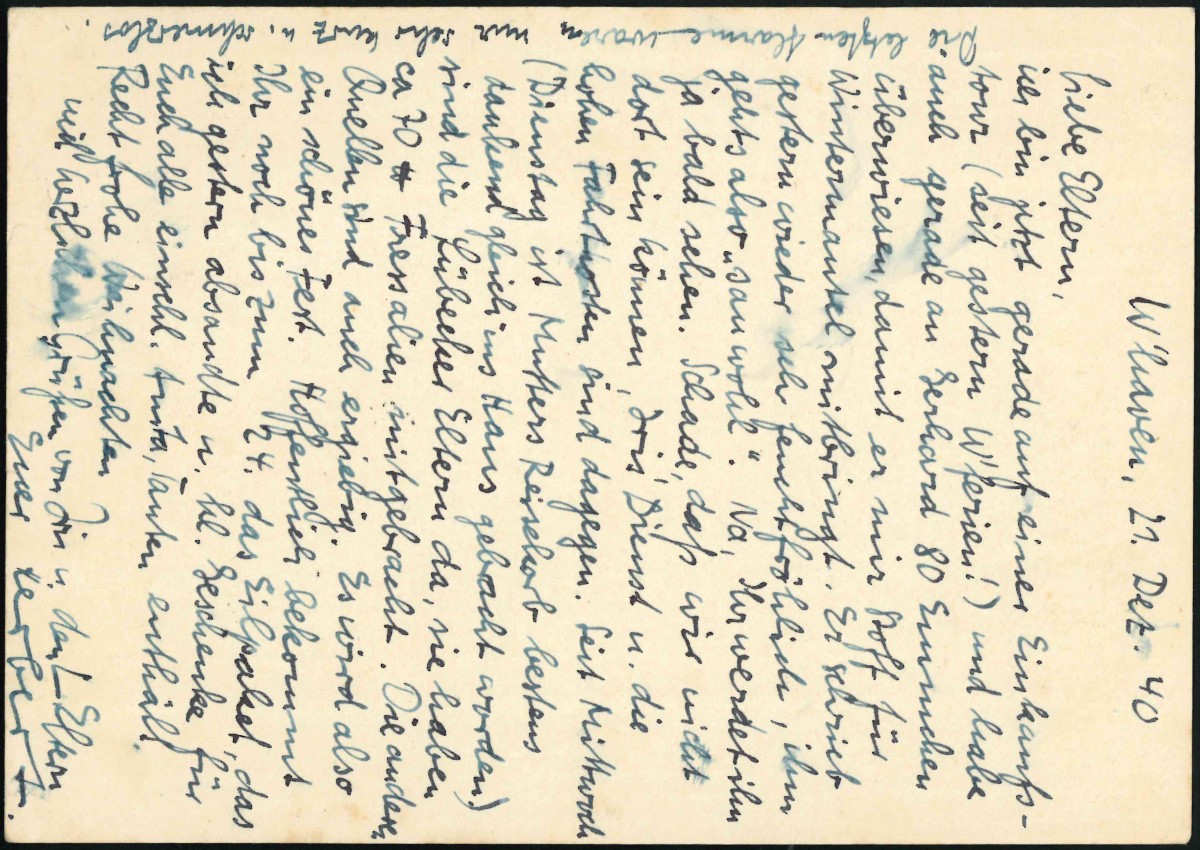 W'haven, 21. Dez. 40
Liebe Eltern,
wir bin jetzt gerade auf einer Einkaufs-
tour (seit gestern W'ferien!) und habe
auch gerade an Gerhard 80 Emmchen
überwiesen, damit er mir Stoff für
Wintermantel mitbringt. Er schrieb
gestern wieder sehr feuchtfröhlich, ihm
gehts also „sauwohl“. Na, Ihr werdet ihn
ja bald sehen. Schade, daß wir nicht
dort sein können, Dienst u. die
hohen Fahrkosten sind dagegen. Seit Mittwoch
(Dienstag ist Mutters Reisekorb bestens
dankend gleich ins Haus gebracht worden)
sind die Lübecker Eltern da, sie haben
ca 70 ℔ Fressalien mitgebracht. Die anderen
Quellen sind auch ergiebig. Es wird also
ein schönes Fest. Hoffentlich bekommt
Ihr noch bis zum 24. das Eilpaket, das
ich gestern absandte u. kl. Geschenke für
Euch alle einschl. Tanten enthält.
Recht frohe Weihnachten
mit herzlichen Grüßen von u. den L-Eltern
Euer Herbert.
Die letzten Alarme waren nur sehr kurz u. schmerzlos.